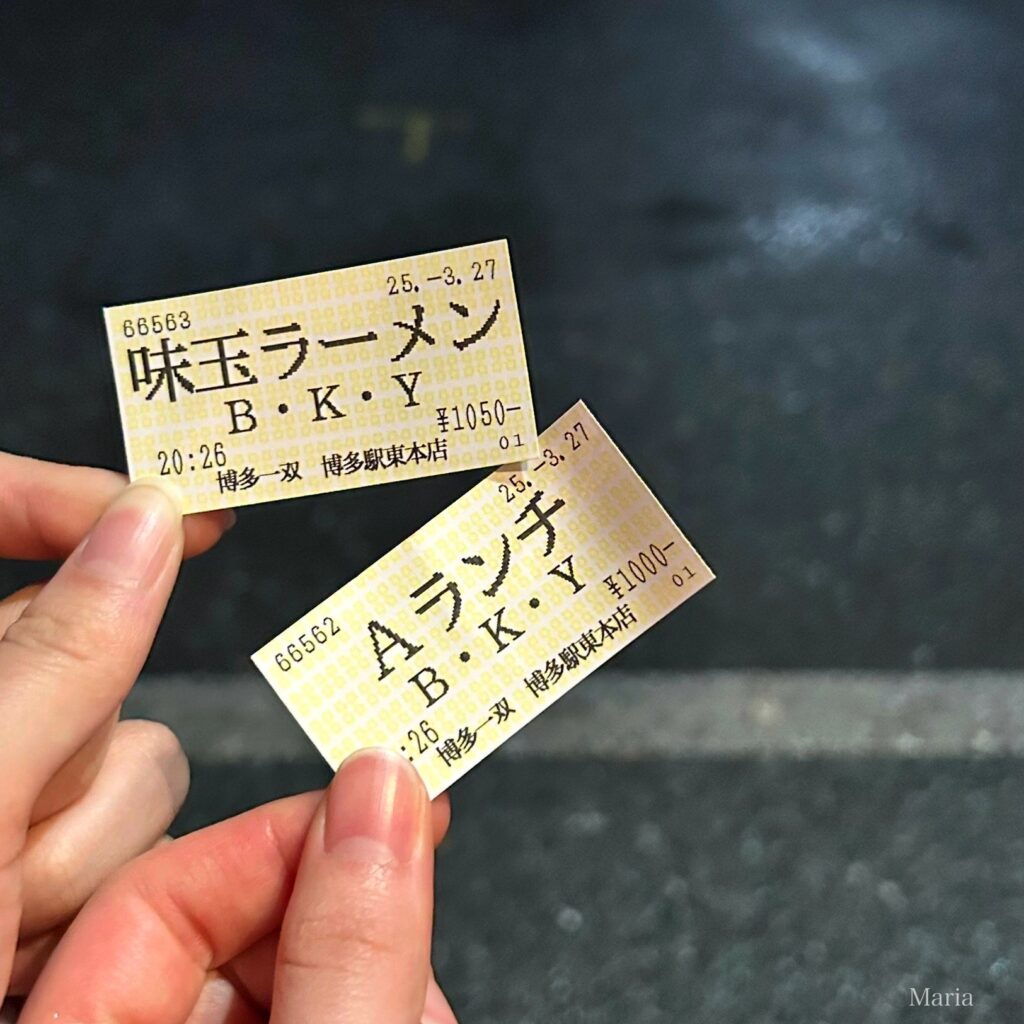 66563 25.-3.27
味玉ラーメン
B・K・Y
¥1050-
20:26 博多一双 博多駅東本店 01
66562 25.-3.27
Aランチ
B・K・Y
¥1000-
:26 博多一双 博多駅東本店 01
Maria